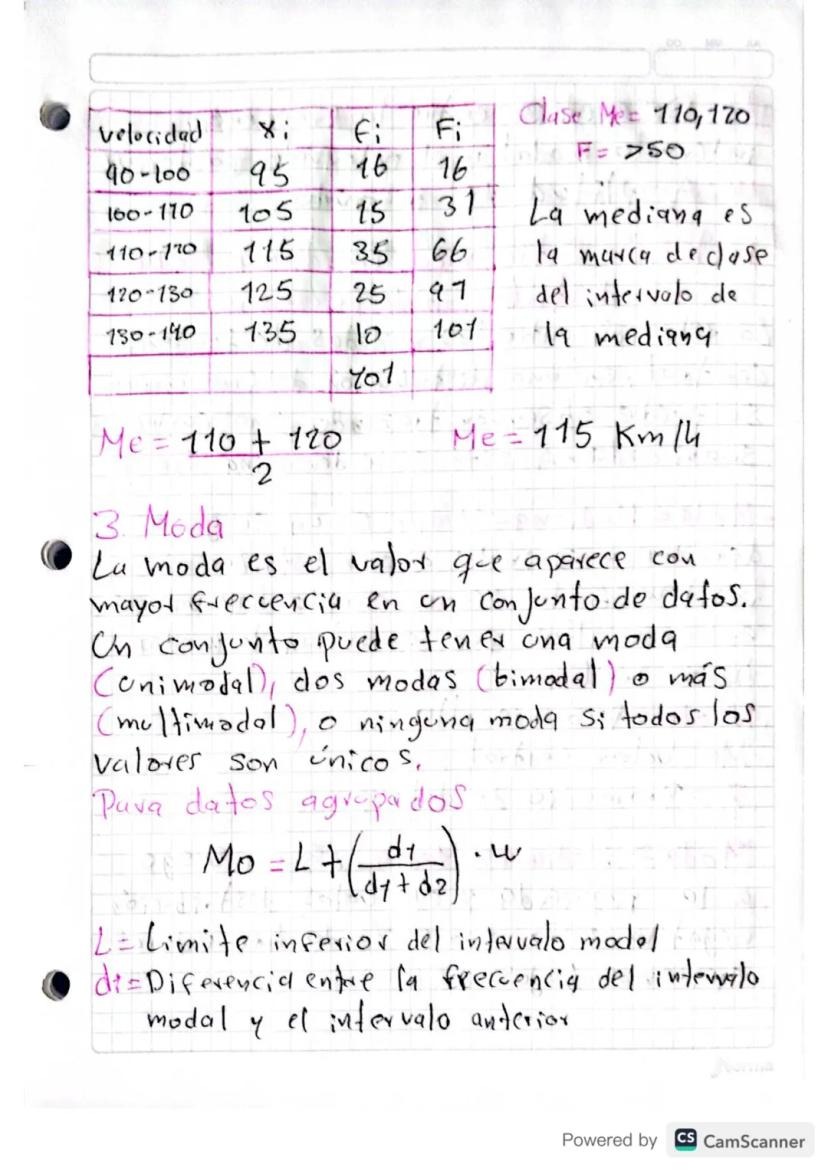 Clase Me = 110, 120
F = >50
Velocidad Xi fi Fi
90-100 95 16 16
100-110 105 15 31
110-120 115 35 66
120-130 125 25 91
130-140 135 10 101
101
La mediana es
la marca de clase
del intervalo de
la mediana
Me = 110 + 120
2
Me = 115 Km/h
3. Moda
La moda es el valor que aparece con
mayor frecuencia en un conjunto de datos.
Un conjunto puede tener una moda
(unimodal), dos modas (bimodal) o más
(multimodal), o ninguna moda si todos los
valores son únicos.
Para datos agrupados
Mo = L + (d1 / d1 + d2) · w
L = Limite inferior del intervalo modal
d1 = Diferencia entre la frecuencia del intervalo
modal y el intervalo anterior
Powered by CS CamScanner